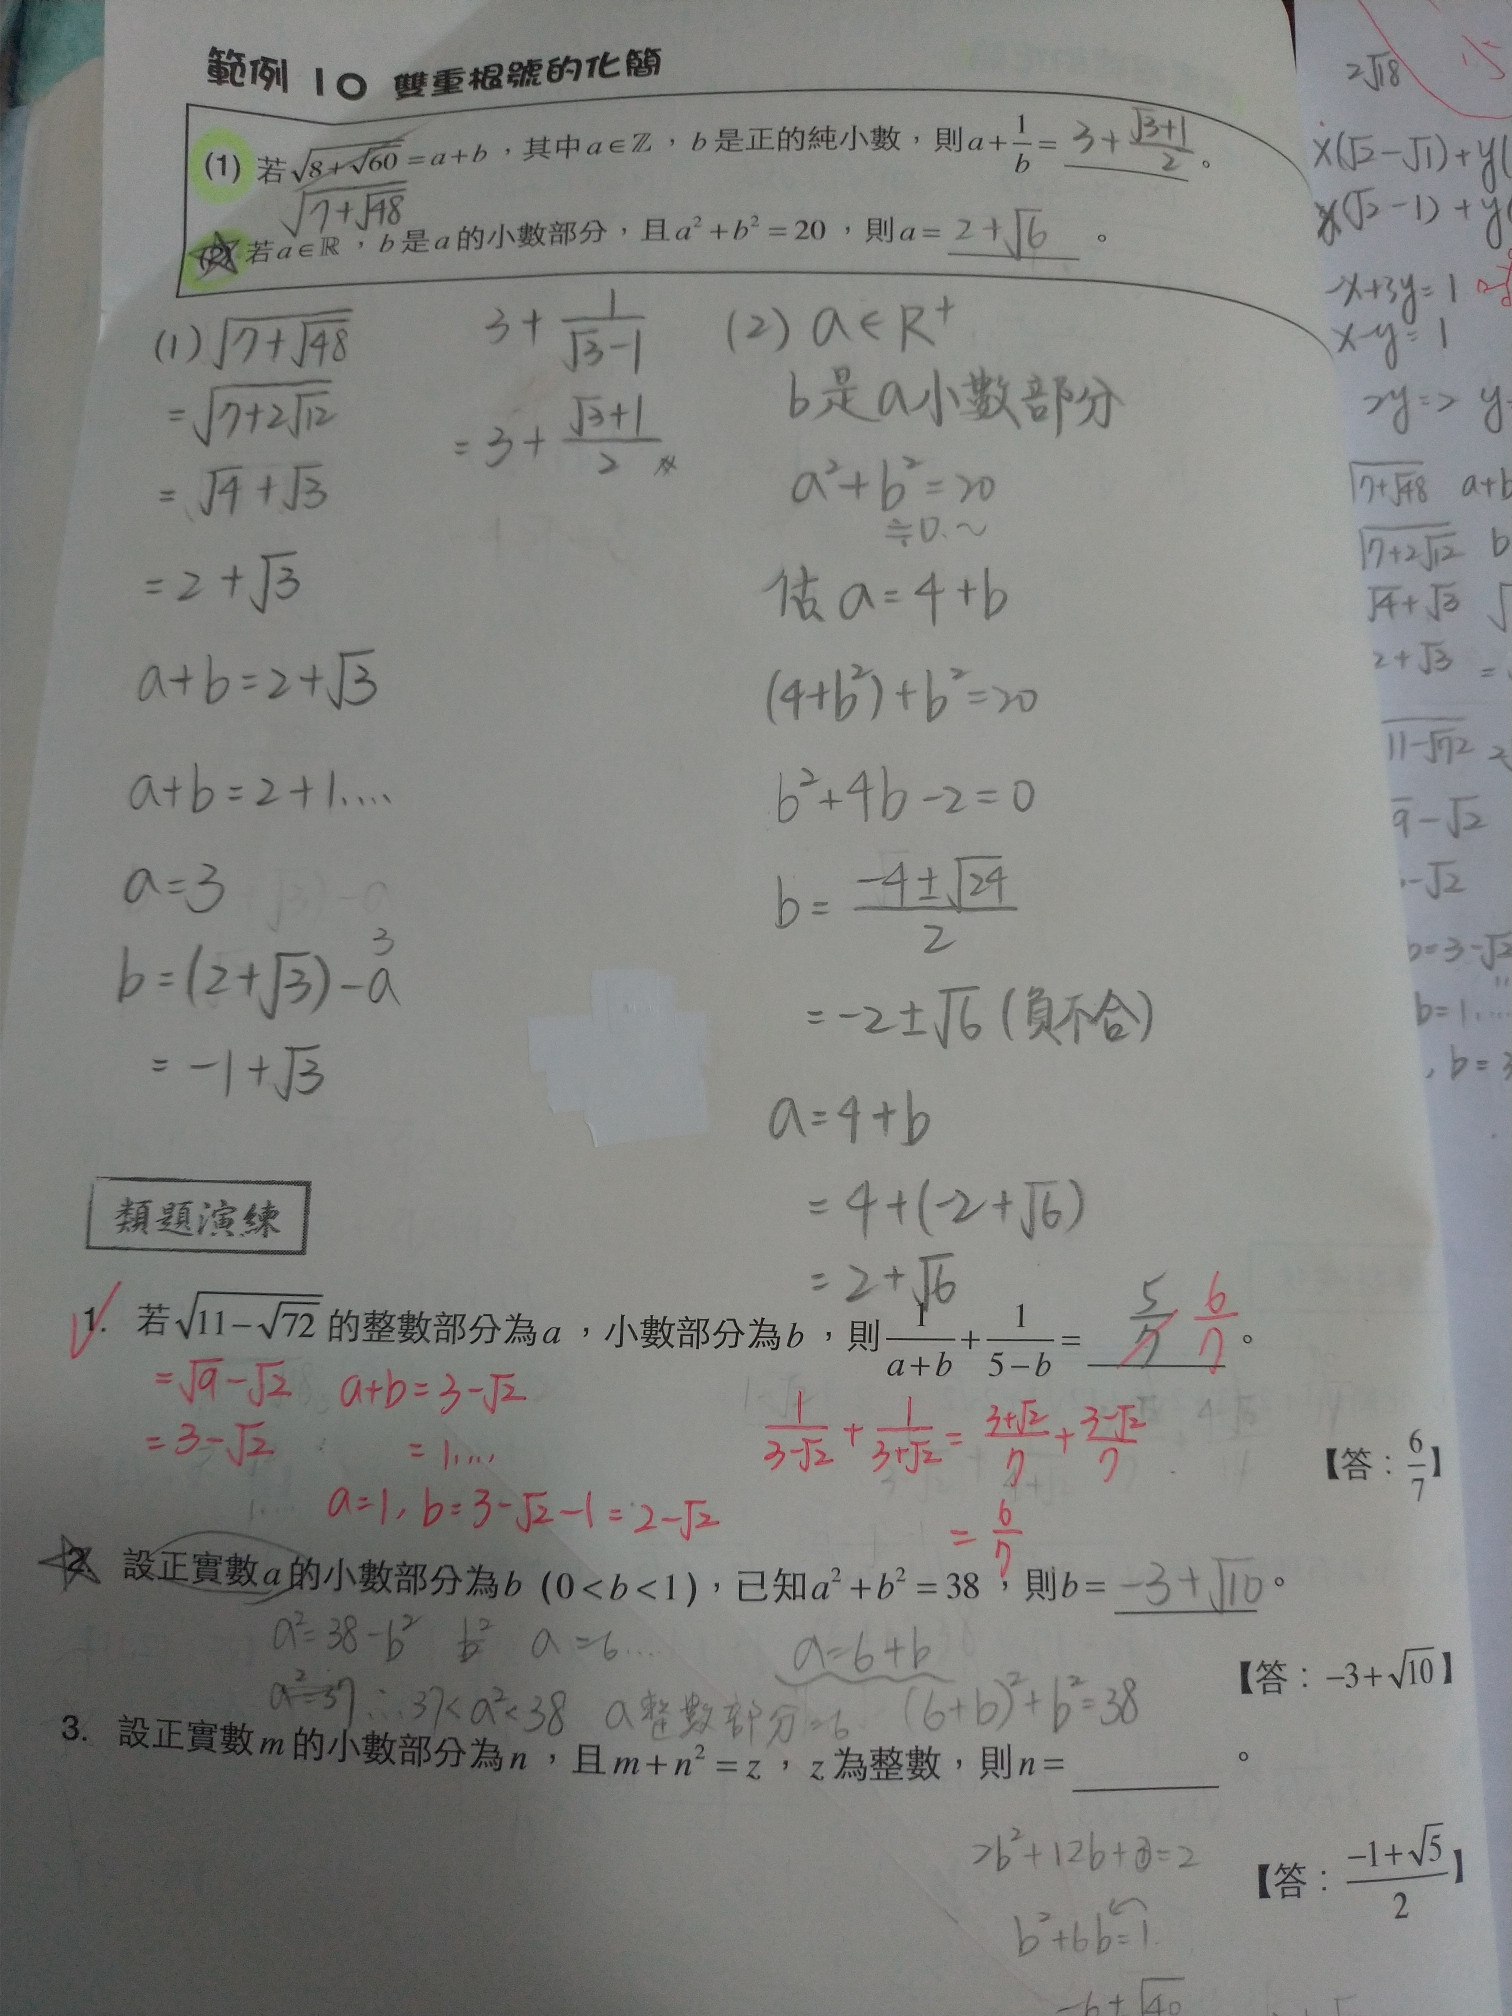 範例 10 雙重根號的化簡
(1) 若√(8+√60) = a+b，其中a∈ℤ，b是正的純小數，則a+1/b= 3+(√3+1)/2 。
√(7+√48)
(2) 若a∈ℝ，b是a的小數部分，且a²+b²=20，則a= 2+√6 。
(1) √(7+√48)
=√(7+2√12)
=√4+√3
=2+√3
a+b=2+√3
a+b=2+1....
a=3
b=(2+√3)-a
3
=-1+√3
3+1/(√3-1)
=3+(√3+1)/2
(2) a∈R⁺
b是a小數部分
a²+b²=20
≒0.~
估a=4+b
(4+b²)+b²=20
b²+4b-2=0
b=(-4±√24)/2
=-2±√6 (負不合)
a=4+b
=4+(-2+√6)
=2+√6
類題演練
1. 若√(11-√72) 的整數部分為a，小數部分為b，則1/(a+b)+1/(5-b)= 5/7 6/7 。
=√9-√2
=3-√2
a+b=3-√2
=1....
a=1, b=3-√2-1=2-√2
1/(3-√2)+1/(3+√2)=(3+√2)/7+(3-√2)/7
=6/7
【答：6/7】
2. 設正實數a的小數部分為b (0<b<1)，已知a²+b²=38，則b= -3+√10 。
a²=38-b² b² a=6....
a²=37 ∴37<a²<38 a整數部分=6
a=6+b
(6+b)²+b²=38
【答：-3+√10】
3. 設正實數m的小數部分為n，且m+n²=z，z為整數，則n=______ 。
2b²+12b+0=2
b²+6b=1
-6±√40
【答：(-1+√5)/2】
2√18
x(√2-√1)+y(
x(√2-1)+y(
-x+3y=1
x-y=1
2y=2 y
√(7+√48) a+b
√(7+2√12) b
√4+√3
2+√3 =
11-√72
9-√2
-√2
b=3-√2
b=1....
, b=3